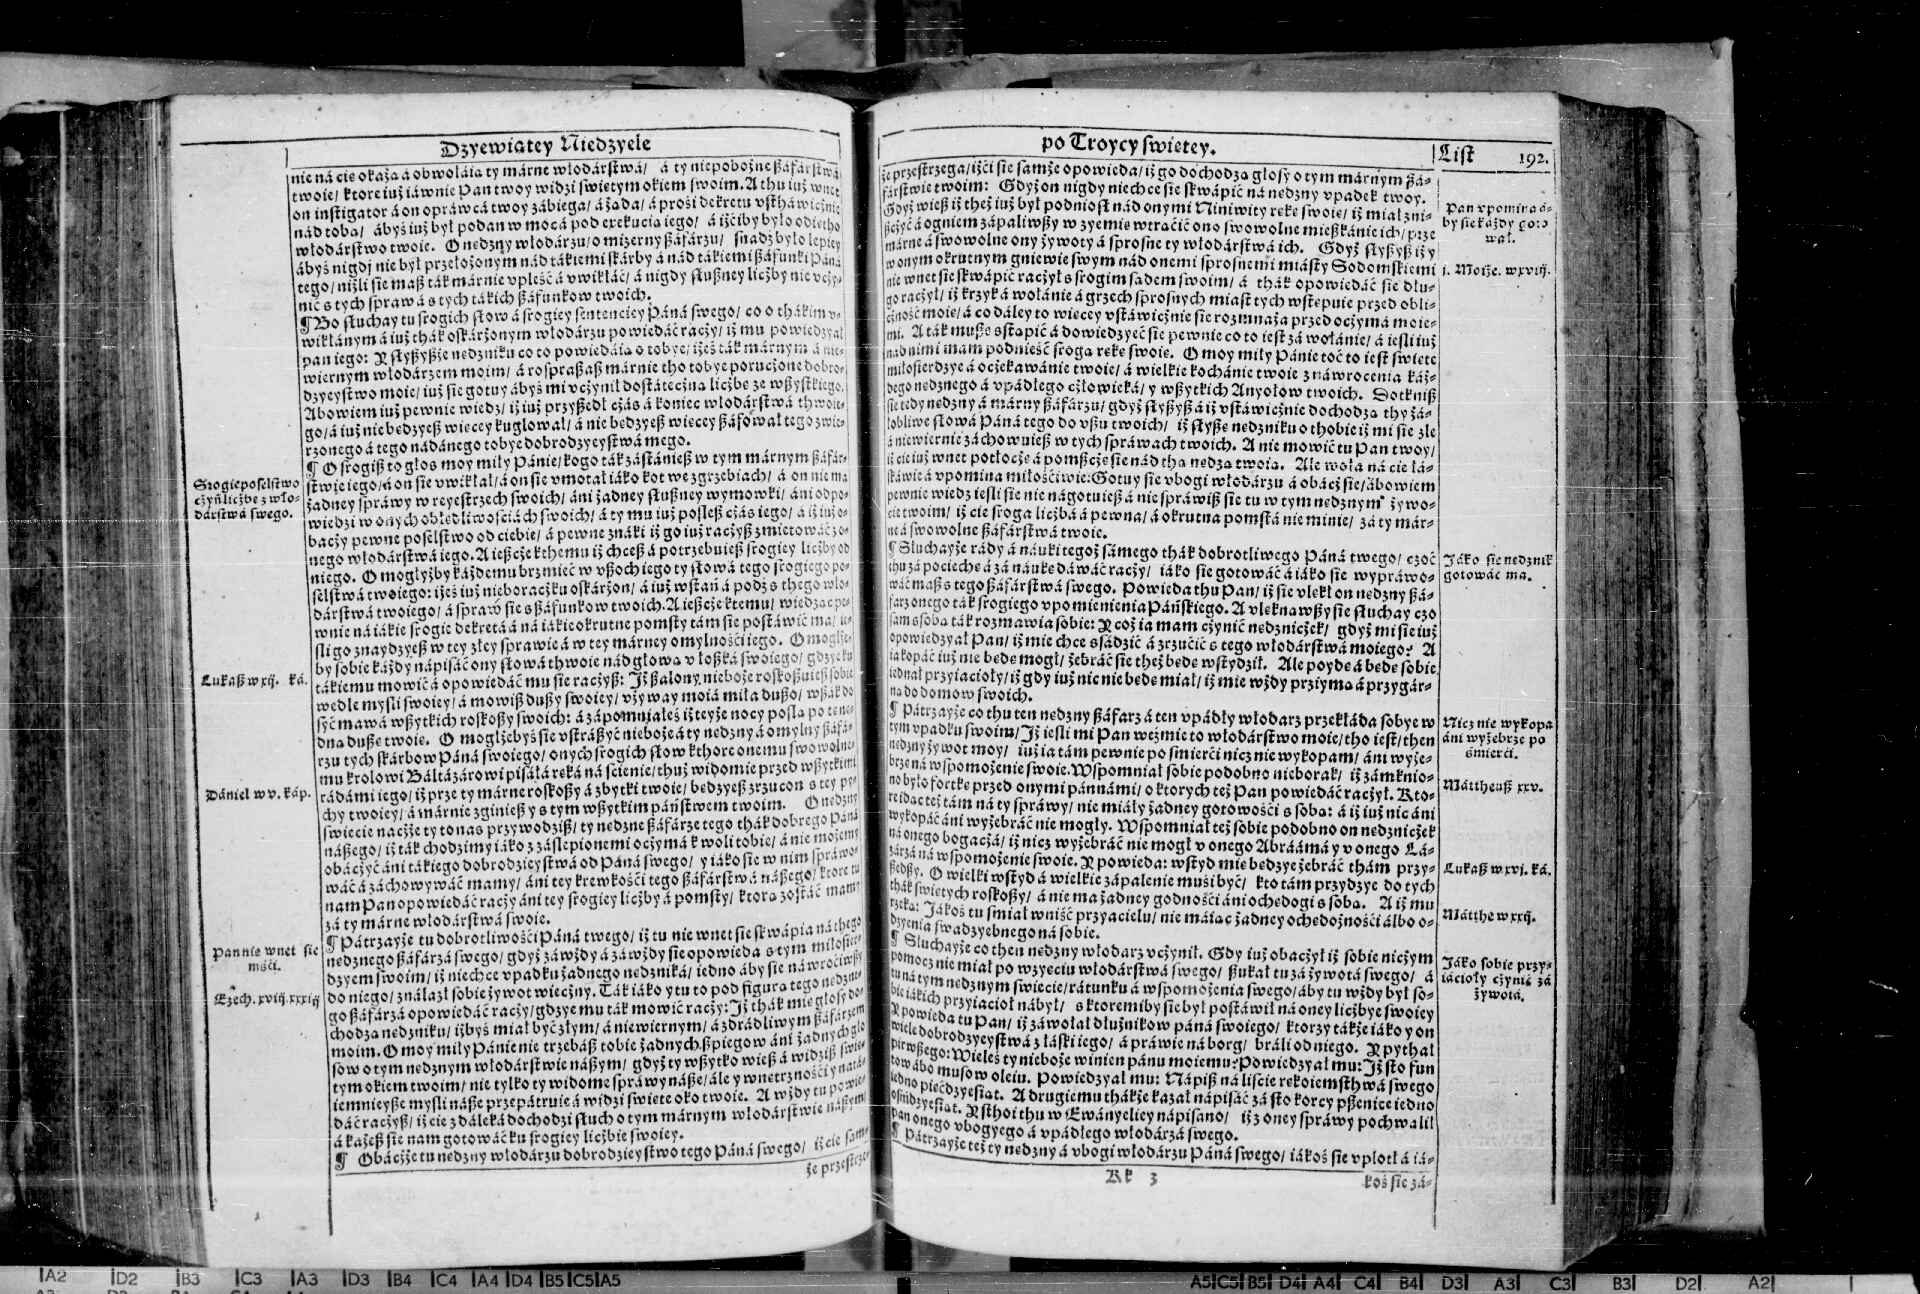 Dzyewiątey Niedzyele
nie ná cie okażą á obwołáią ty márne włodárstwá/ á ty niepobożne száfárstwá
twoie/ ktore iuż iáwnie Pan twoy widzi swiętym okiem swoim. A thu iuż wnet
on instigator á on opráwcá twoy zábiega/ á żąda/ á prosi dekretu vsthawicżnie
nád tobą/ ábyś iuż był podan w moc á pod exekucią iego/ á iżćiby było odięto
włodárstwo twoie. O nędzny włodárzu/ o mizerny száfárzu/ snadz było lepiey
ábyś nigdy nie był przełożonym nád tákiemi skárby á nád tákiemi száfunki Páná
tego/ niżli sie masz ták márnie vpleść á vwikłáć/ á nigdy słuszney licżby nie vcży-
nić s tych spraw á s tych tákich száfunkow twoich.
¶ Bo słuchay tu srogich słow á srogiey sentenciey Páná swego/ co o thákim v-
wikłánym á iuż thák oskárżonym włodárzu powiedáć racży/ iż mu powiedzyał
pan iego: Y słyszyszże nędzniku co to powiedáią o tobye/ iżeś ták márnym á nie-
wiernym włodárzem moim/ á rospraszasz márnie tho tobye porucżone dobro-
dzyeystwo moie/ iuż sie gotuy ábyś mi vcżynił dostátecżną licżbę ze wszystkiego.
Abowiem iuż pewnie wiedz/ iż iuż przyszedł cżás á koniec włodárstwá thwoie-
go/ á iuż nie będzyesz więcey kuglował/ á nie będzyesz więcey száfował tego zwie-
rzonego á tego nádánego tobye dobrodzyeystwá mego.
¶ O srogisz to głos moy miły Pánie/ kogo ták zástániesz w tym márnym száfár-
stwie iego/ á on sie vwikłał/ á on sie vmotał iáko kot we zgrzebiach/ á on nie ma
żadney spráwy w reyestrzech swoich/ áni żadney słuszney wymowki/ áni odpo-
wiedzi w onych obłędliwościách swoich/ á ty mu iuż poślesz cżás iego/ á iż iuż o-
bacży pewne poselstwo od ciebie/ á pewne znáki iż go iuż racżysz zmietowáć z o-
nego włodárstwá iego. A ieszcże kthemu iż chcesz á potrzebuiesz srogiey licżby od
niego. O mogłyżby káżdemu brzmieć w vszoch iego ty słowá tego srogiego po-
selstwá twoiego: iżeś iuż nieboracżku oskárżon/ á iuż wstań á podz s thego wło-
dárstwá twoiego/ á spraw sie s száfunkow twoich. A ieszcże ktemu/ wiedząc pe-
wnie ná iákie srogie dekretá á ná iákie okrutne pomsty tám sie postáwić ma/ ie-
sli go znaydzyesz w tey złey spráwie á w tey márney omylności iego. O mogłże-
by sobie káżdy nápisáć ony słowá thwoie nád głową v łoszká swoiego/ gdzye ku
tákiemu mowić á opowiedáć mu sie racżysz: Iż szalony nieboże roskoszuiesz sobie
wedle mysli swoiey/ á mowisz duszy swoiey/ vżyway moiá miła duszo/ wszák do
syć mawá wszytkich roskoszy swoich: á zápomniałeś iż teyże nocy poślą po tę nę-
dną duszę twoię. O mogłżebyś sie vstrászyć nieboże á ty nędzny á omylny száfá-
rzu tych skárbow Páná swoiego/ onych srogich słow kthore onemu swowolne-
mu krolowi Báltázárowi pisáłá ręká ná ścienie/ thuż widomie przed wszytkimi
rádámi iego/ iż prze ty márne roskoszy á zbytki twoie/ będzyesz zrzucon s tey py-
chy twoiey/ á márnie zginiesz y s tym wszytkim páństwem twoim. O nędzny
świecie nacżże ty to nas przywodzisz/ ty nędzne száfárze tego thák dobrego Páná
nászego/ iż ták chodzimy iáko z záslepionemi ocżymá k woli tobie/ á nie możemy
obácżyć áni tákiego dobrodzieystwá od Páná swego/ y iáko sie w nim spráwo-
wáć á záchowywáć mamy/ áni tey krewkości tego száfárstwá nászego/ ktore tu
nam Pan opowiedáć racży áni tey srogiey licżby á pomsty/ ktora zostáć mamy
zá ty márne włodárstwá swoie.
¶ Pátrzayże tu dobrotliwości Páná twego/ iż tu nie wnet sie skwápia ná thego
nędznego száfárzá swego/ gdyż záwżdy á záwżdy sie opowieda s tym miłosier-
dzyem swoim/ iż niechce vpadku żadnego nędzniká/ iedno áby sie náwrociwszy
do niego/ ználazł sobie żywot wiecżny. Ták iáko y tu to pod figurą tego nędzne-
go száfárzá opowiedáć racży/ gdzye mu ták mowić racży: Iż thák mię głosy do-
chodzą nędzniku/ iżbyś miał być złym/ á niewiernym/ á zdrádliwym száfárzem
moim. O moy miły Pánie nie trzebász tobie żadnych szpiegow áni żadnych gło
sow o tym nędznym włodárstwie nászym/ gdyż ty wszytko wiesz á widzisz świę-
tym okiem twoim/ nie tylko ty widome spráwy násze/ ále y wnętrzności y natá-
iemnieysze mysli násze przepátruie á widzi święte oko twoie. A wżdy tu powie-
dáć racżysz/ iż cie z dáleká dochodzi słuch o tym márnym włodárstwie nászym/
á każesz sie nam gotowáć ku srogiey licżbie swoiey.
¶ Obacżże tu nędzny włodárzu dobrodzieystwo tego Páná swego/ iż cie sam-
że przestrze-
Srogie poselstwo
cżyń licżbę z wło-
dárstwá swego.
Lukasz w xij. ká.
Dániel w v. káp.
Pan nie wnet sie
mści.
Ezech. xviij. xxxiij
po Troycy swiętey.
List 192.
że przestrzega/ iżći sie samże opowieda/ iż go dochodzą głosy o tym márnym szá-
fárstwie twoim: Gdyż on nigdy niechce sie skwápić ná nędzny vpadek twoy.
Gdyż wiesz iż theż iuż był podniosł nád onymi Niniwity rękę swoię/ iż miał zni-
szcżyć á ogniem zápaliwszy w zyemię wtrącić ono swowolne mieszkánie ich/ prze
márne á swowolne ony żywoty á sprosne ty włodárstwá ich. Gdyż słyszysz iż y
w onym okrutnym gniewie swym nád onemi sprosnemi miásty Sodomskiemi
nie wnet sie skwápić racżył s srogim sądem swoim/ á thák opowiedáć sie dłu-
go racżył/ iż krzyk á wołánie á grzech sprosnych miast tych wstępuie przed obli-
cżność moię/ á co dáley to więcey vstáwicżnie sie rozmnaża przed ocżymá moie-
mi. A ták muszę sstąpić á dowiedzyeć sie pewnie co to iest zá wołánie/ á iesli iuż
nád nimi mam podnieść srogą rękę swoię. O moy miły Pánie toć to iest święte
miłosierdzye á ocżekawánie twoie/ á wielkie kochánie twoie z náwrocenia káż-
dego nędznego á vpádłego cżłowieká/ y wszytkich Anyołow twoich. Dotkniż
sie tedy nędzny á márny száfárzu/ gdyż słyszysz á iż vstáwicżnie dochodzą thy żá-
łobliwe słowá Páná tego do vszu twoich/ iż słyszę nędzniku o thobie iż mi sie źle
á niewiernie záchowuiesz w tych spráwach twoich. A nie mowić tu Pan twoy/
iż cie iuż wnet potłocżę á pomszcżę sie nád thą nędzą twoią. Ale woła ná cie łá-
skáwie á vpomina miłościwie: Gotuy sie vbogi włodárzu á obacż sie/ ábowiem
pewnie wiedz iesli sie nie nágotuiesz á nie spráwisz sie tu w tym nędznym żywo-
cie twoim/ iż cie sroga licżbá á pewna/ á okrutna pomstá nie minie/ zá ty már-
ne á swowolne száfárstwá twoie.
¶ Słuchayże rády á náuki tegoż sámego thák dobrotliwego Páná twego/ czoć
thu zá pociechę á zá náukę dáwáć racży/ iáko sie gotowáć á iáko sie wypráwo-
wáć masz s tego száfárstwá swego. Powieda thu Pan/ iż sie vlękł on nędzny szá-
farz onego ták srogiego vpomienienia Páńskiego. A vlęknąwszy sie słuchay czo
sam s sobą ták rozmawia sobie: Y coż ia mam cżynić nędznicżek/ gdyż mi sie iuż
opowiedzyał Pan/ iż mię chce ssádzić á zrzucić s tego włodárstwá moiego? A
ia kopáć iuż nie będę mogł/ żebráć sie theż będę wstydził. Ale poydę á będę sobie
iednał przyiacioły/ iż gdy iuż nic nie będę miał/ iż mię wżdy przyimą á przygár-
ną do domow swoich.
¶ Pátrzayże co thu ten nędzny száfarz á ten vpádły włodarz przekłáda sobye w
tym vpadku swoim/ Iż iesli mi Pan weźmie to włodárstwo moie/ tho iest/ then
nędzny żywot moy/ iuż ia tám pewnie po śmierci nicz nie wykopam/ áni wyże-
brzę ná wspomożenie swoie. Wspomniał sobie podobno nieborak/ iż zámknio-
no było fortkę przed onymi pánnámi/ o ktorych też Pan powiedáć racżył. Kto-
re idąc też tám ná ty spráwy/ nie miáły żadney gotowości s sobą: á iż iuż nic áni
wykopáć áni wyżebráć nie mogły. Wspomniał też sobie podobno on nędznicżek
ná onego bogacżá/ iż nicz wyżebráć nie mogł v onego Abráámá y v onego Ła-
zárzá ná wspomożenie swoie. Y powieda: wstyd mię będzye żebráć thám przy-
szedszy. O wielki wstyd á wielkie zápalenie musi być/ kto tám przydzye do tych
thák świętych roskoszy/ á nie ma żadney godności áni ochędogi s sobą. A iż mu
rzeką: Iákoś tu śmiał wniść przyacielu/ nie máiąc żadney ochędożności álbo o-
dzyenia swadzyebnego ná sobie.
¶ Słuchayże co then nędzny włodarz vcżynił. Gdy iuż obacżył iż sobie niczym
pomocz nie miał po wzyęciu włodárstwá swego/ szukał tu zá żywotá swego/ á
tu ná tym nędznym świecie/ rátunku á wspomożenia swego/ áby tu wżdy był so-
bie iákich przyiacioł nábył/ s ktoremiby sie był postáwił ná oney licżbye swoiey
Y powieda tu Pan/ iż záwołał dłużnikow páná swoiego/ ktorzy tákże iáko y on
wiele dobrodzyeystwá z łáski iego/ á práwie ná borg/ bráli od niego. Y pythał
pirwszego: Wieleś ty nieboże winien pánu moiemu? Powiedzyał mu: Iż sto fun
tow ábo musow oleiu. Powiedzyał mu: Nápisz ná liście rękoiemsthwá swego
iedno pięćdzyesiąt. A drugiemu thákże kazał nápisáć zá sto korcy pszenice iedno
ośmdzyesiąt. Y sthoi thu w Ewányeliey nápisano/ iż z oney spráwy pochwalił
pan onego vbogyego á vpádłego włodárzá swego.
¶ Pátrzayże też ty nędzny á vbogi włodárzu Páná swego/ iákoś sie vplotł á iá-
Kk 3 koś sie zá-
Pan vpomina á-
by sie káżdy goto
wał.
j. Moiże. w xviij.
Iáko sie nędznik
gotowáć ma.
Nicz nie wykopa
áni wyżebrze po
śmierci.
Mattheusz xxv.
Lukasz w xvj. ká.
Matthe w xxij.
Iáko sobie przy-
iacioły cżynić zá
żywotá.
A2 D2 B3 C3 A3 D3 B4 C4 A4 D4 B5 C5 A5
A5 C5 B5 D4 A4 C4 B4 D3 A3 C3 B3 D2 A2